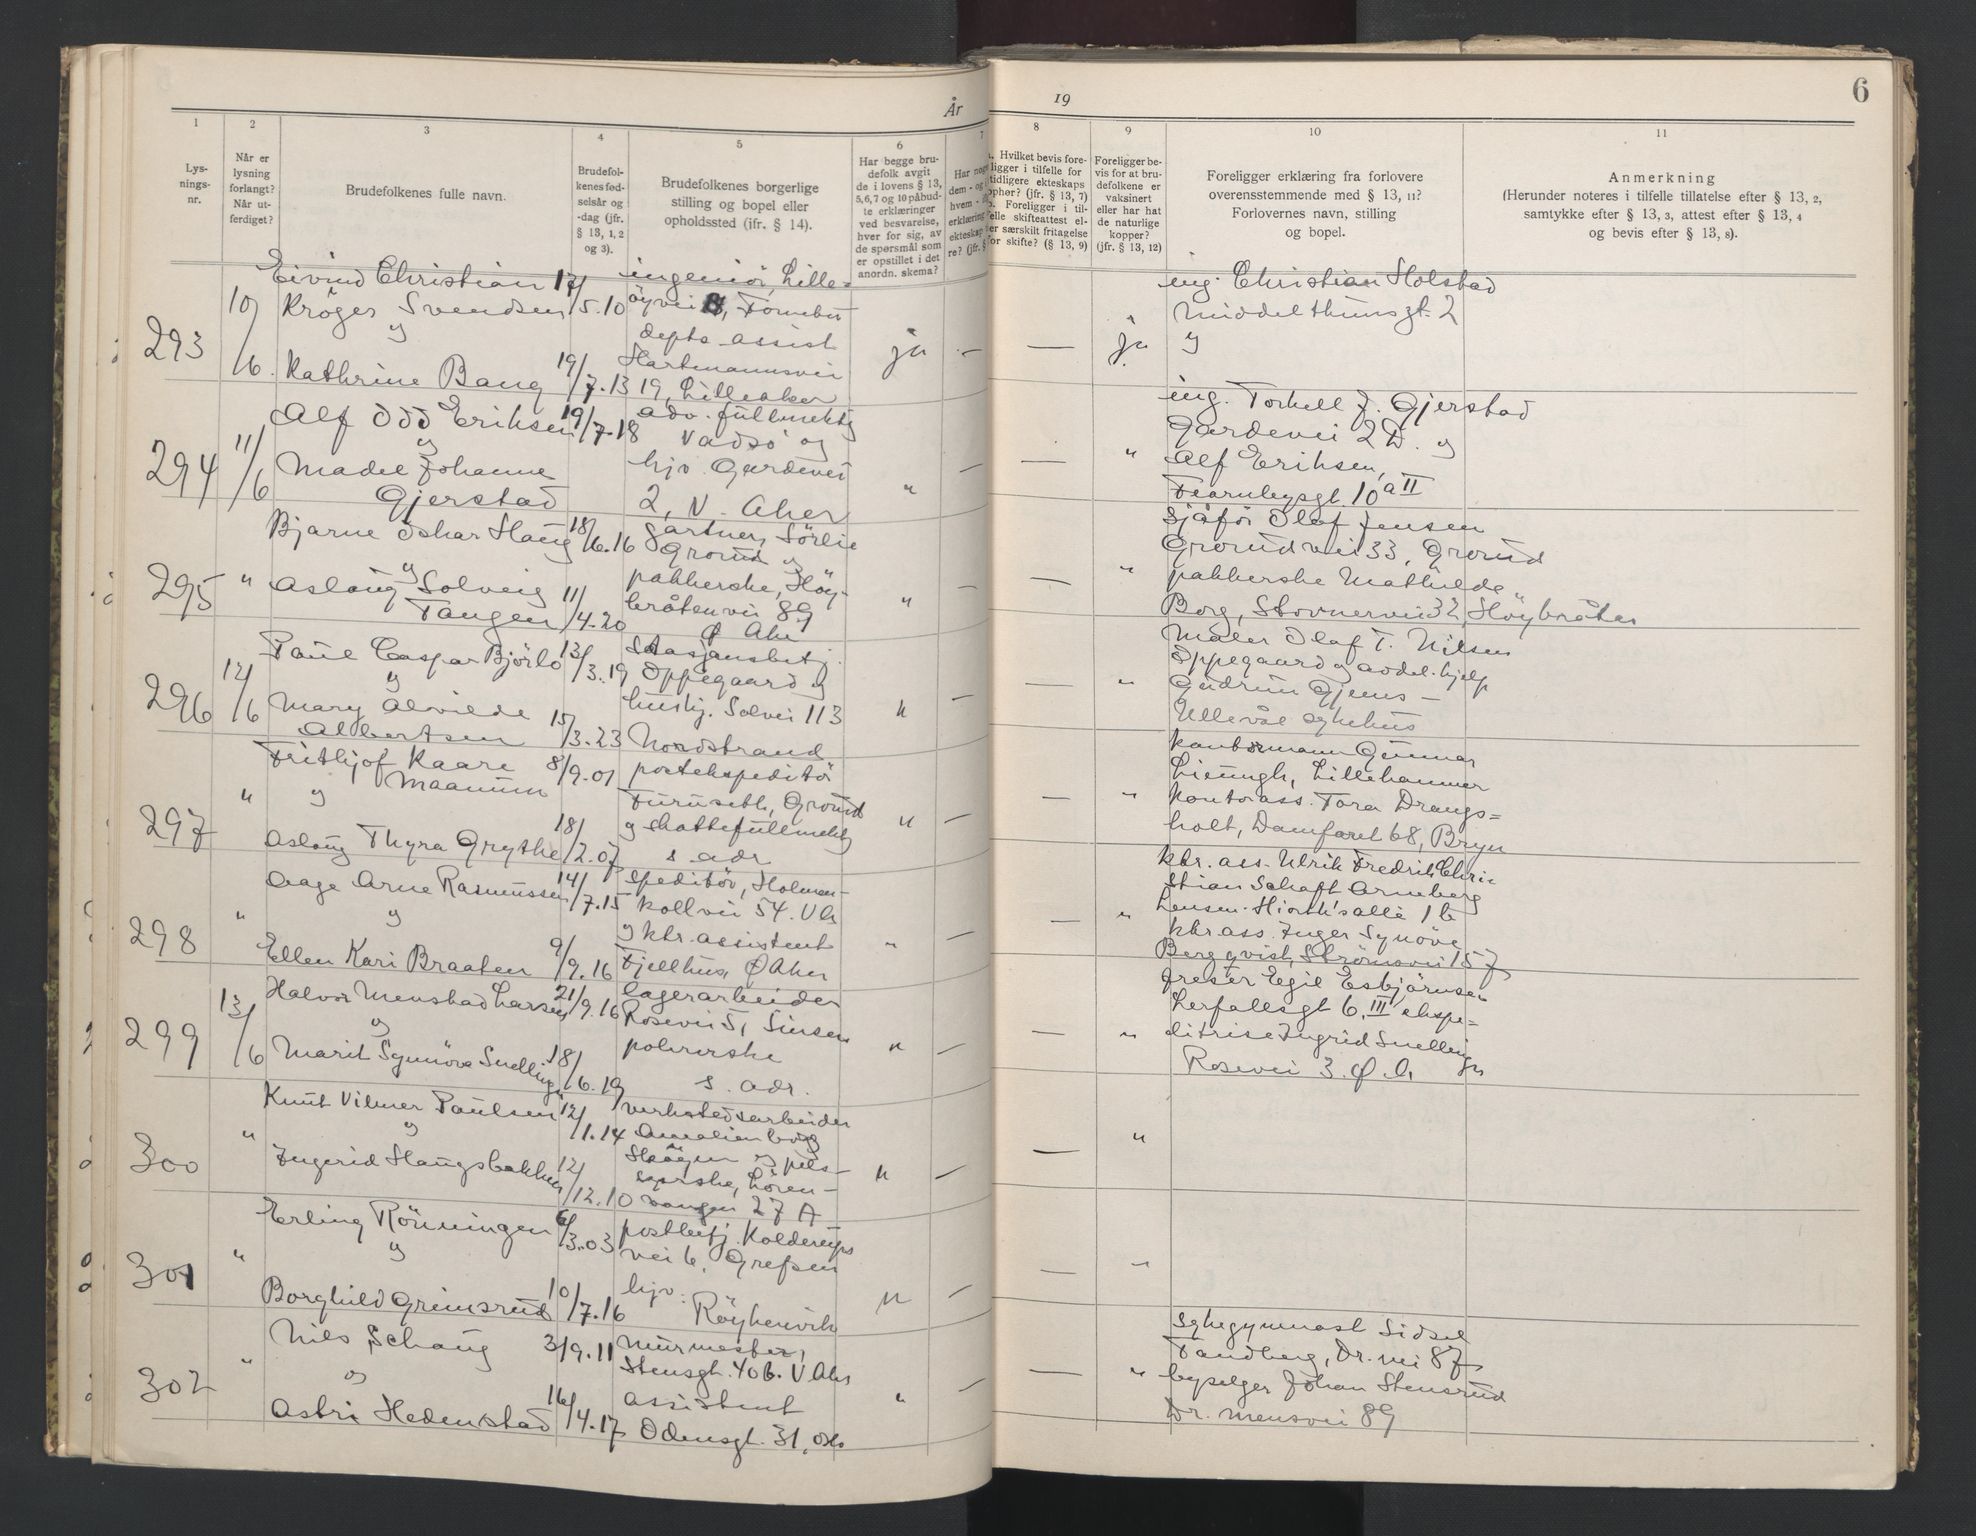 År
19
6
1
2
3
4
5
6
7
8
9
10
11
Lys-
nings-
nr.
Når er
lysning
forlangt?
Når ut-
ferdiget?
Brudefolkenes fulle navn.
Brudefol-
kenes fød-
selsår og
-dag (jfr.
§ 13, 1, 2
og 3).
Brudefolkenes borgerlige
stilling og bopel eller
opholdssted (jfr. § 14).
Har begge bru-
defolk avgit
de i lovens § 13,
5, 6, 7 og 10 påbud-
te erklæringer
ved besvarelse,
hver for sig, av
de spørsmål som
er opstillet i det
anordn. skema?
Har nog
dem - og
hvem -
erklæring
ekteskap
re? (jfr. §
Hvilket bevis fore-
ligger i tilfelle for
tidligere ekteskaps
ophør? (jfr. § 13, 7)
Foreligger i til-
felle skifteattest el-
er særskilt fritagelse
for skifte? (§ 13, 9)
Foreligger be-
vis for at bru-
defolkene er
vaksinert
eller har hat
de naturlige
kopper?
(jfr. § 13, 12)
Foreligger erklæring fra forlovere
overensstemmende med § 13, 11?
Forlovernes navn, stilling
og bopel.
Anmerkning
(Herunder noteres i tilfelle tillatelse efter § 13, 2,
samtykke efter § 13, 3, attest efter § 13, 4
og bevis efter § 13, 8).
293
10/6.
Eivind Christian
Kröger Svendsen
17/5.10
og
Kathrine Bang
19/7.13
ingeniör, Lille-
öyvei 8, Fornebu
depts assist
Hartmannsvei
19, Lilleaker
ja
—
—
ja
ing. Christian Holstad
Middelthunsgt. 2
og
294
11/6
Alf Odd Eriksen
19/7.18
og
Madel Johanne
Gjerstad
adv. fullmektig
Vadsö og
hjv. Gardevei
2, V. Aker
"
—
—
"
ing. Torkell J. Gjerstad
Gardevei 2D. og
Alf Eriksen,
Fearnleysgt. 10a II
295
"
Bjarne Oskar Haug
18/6.16
og
Aslaug Solveig
Tangen
11/4.20
gartner, Sörlie
Grorud og
pakkerske, Höy-
bråtenvei 89
Ø Aker
"
—
—
"
sjåför Olaf Jensen
Grorudvei 33, Grorud
pakkerske Mathilde
Borg, Stovnervei 32, Höybråten
296
12/6
Paul Caspar Bjørlo
13/3.19
og
Mary Alvilde
Albertsen
15/3.23
Stasjonsbetj.
Oppegaard og
hushj. Solvei 113
Nordstrand
"
—
—
"
maler Olaf T. Nilsen
Oppegaard og avdel. hjelp
Gudrun Gjems —
Ullevål sykehus
297
"
Frithjof Kaare
Maanum
8/9.01
og
Aslaug Thyra Grythe
18/2.07
postekspeditör
Furuseth, Grorud
og skattefullmekt
s. adr
"
—
—
"
kontormann Gunnar
Lieungh, Lillehammer
kontorass. Tora Drangs=
holt, Damfaret 68, Bryn
298
"
Aage Arne Rasmussen
14/7.15
og
Ellen Kari Braaten
9/9.16
speditör, Holmen-
kollvei 54. V Ak
og ktr. assistent
Fjellhus, Ø Aker
"
—
—
"
ktr. ass. Ulrik Fredrik Chri-
stian Schaft Arneberg
Lensen. Hiorth's alle 1 b
ktr. ass. Inger Synöve
Bergqvist, Strömsvei 157
299
13/6
Halvor Menstad Larsen
21/9.16
og
Marit Synnöve Snellingen
18/6.19
lagerarbeider
Rosevei 5, Sinsen
polererske
s. adr.
"
—
—
"
freser Egil Esbjörnsen
Lerfallsgt 6, III ekspe=
ditrise Ingrid Snellingen
Rosevei 3. Ø. A.
300
"
Knut Vilmer Paulsen
12/1.14
og
Ingerid Haugsbakken
12/12.10
verkstedsarbeider
Amalienborg
Skögen og pels-
syerske, Lören-
vangen 27 A
"
—
—
"
301
"
Erling Rönningen
6/3.03
og
Borghild Grimsrud
10/7.16
postbetj. Kolderups
vei 6, Grefsen
hjv.
Röykenvik
"
—
—
"
302
"
Nils Schaug
3/9.11
og
Astri Hedenstad
16/4.17
murmester,
Stensgt. 40b. V Aker
assistent
Odensgt. 31, Oslo
"
—
—
"
sykegymnast Sidsel
Tandberg, Dr. vei 87
byselger Johan Stensrud
Dr.mensvei 89